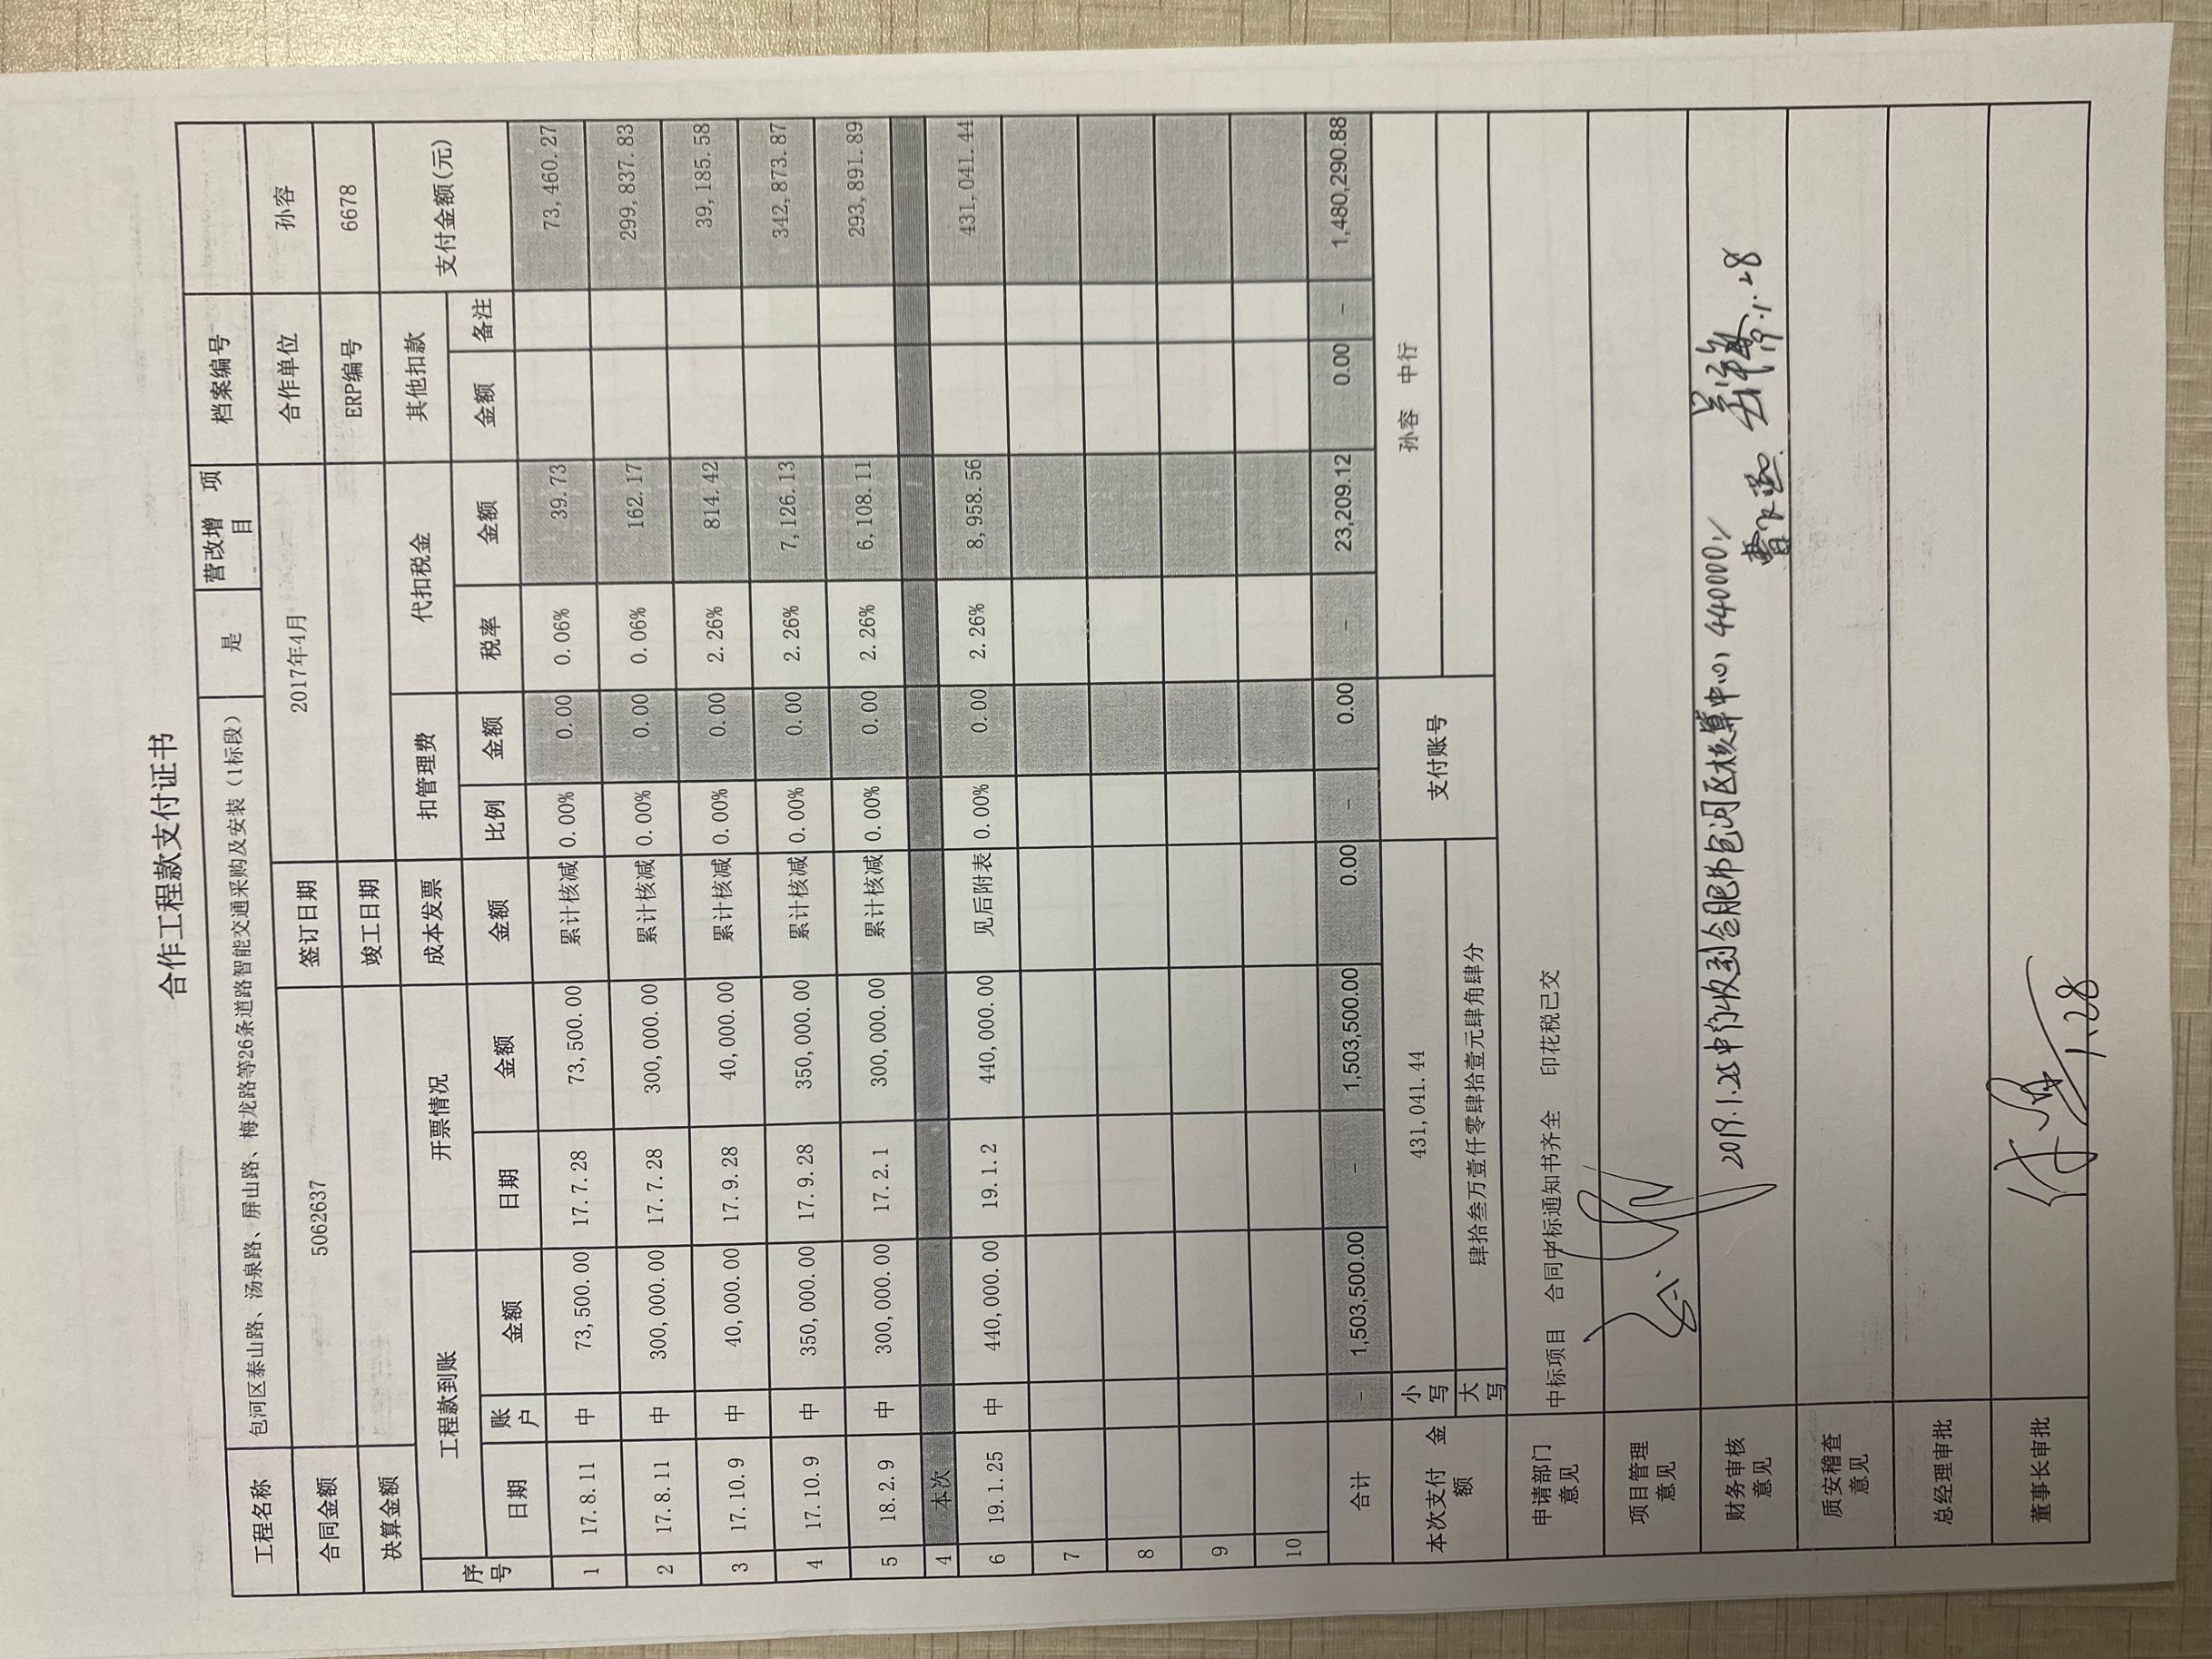 合作工程款支付证书
工程名称 包河区泰山路、汤泉路、屏山路、梅龙路等26条道路智能交通采购及安装（1标段） 是 营改增 项目 档案编号
合同金额 5062637 签订日期 2017年4月 合作单位 孙容
决算金额 竣工日期 ERP编号 6678
序号 工程款到账 开票情况 成本发票 扣管理费 代扣税金 其他扣款 支付金额(元)
日期 账户 金额 日期 金额 金额 比例 金额 税率 金额 金额 备注
1 17.8.11 中 73,500.00 17.7.28 73,500.00 累计核减 0.00% 0.00 0.06% 39.73 73,460.27
2 17.8.11 中 300,000.00 17.7.28 300,000.00 累计核减 0.00% 0.00 0.06% 162.17 299,837.83
3 17.10.9 中 40,000.00 17.9.28 40,000.00 累计核减 0.00% 0.00 2.26% 814.42 39,185.58
4 17.10.9 中 350,000.00 17.9.28 350,000.00 累计核减 0.00% 0.00 2.26% 7,126.13 342,873.87
5 18.2.9 中 300,000.00 17.2.1 300,000.00 累计核减 0.00% 0.00 2.26% 6,108.11 293,891.89
4 本次
6 19.1.25 中 440,000.00 19.1.2 440,000.00 见后附表 0.00% 0.00 2.26% 8,958.56 431,041.44
7
8
9
10
合计 - 1,503,500.00 - 1,503,500.00 0.00 - 0.00 - 23,209.12 0.00 - 1,480,290.88
本次支付 金额 小写 431,041.44 支付账号 孙容 中行
大写 肆拾叁万壹仟零肆拾壹元肆角肆分
申请部门意见 中标项目 合同中标通知书齐全 印花税已交
项目管理意见
财务审核意见 2019.1.25中行收到合肥市包河区核算中心 440000 19.1.28
质安稽查意见
总经理审批
董事长审批 1.28